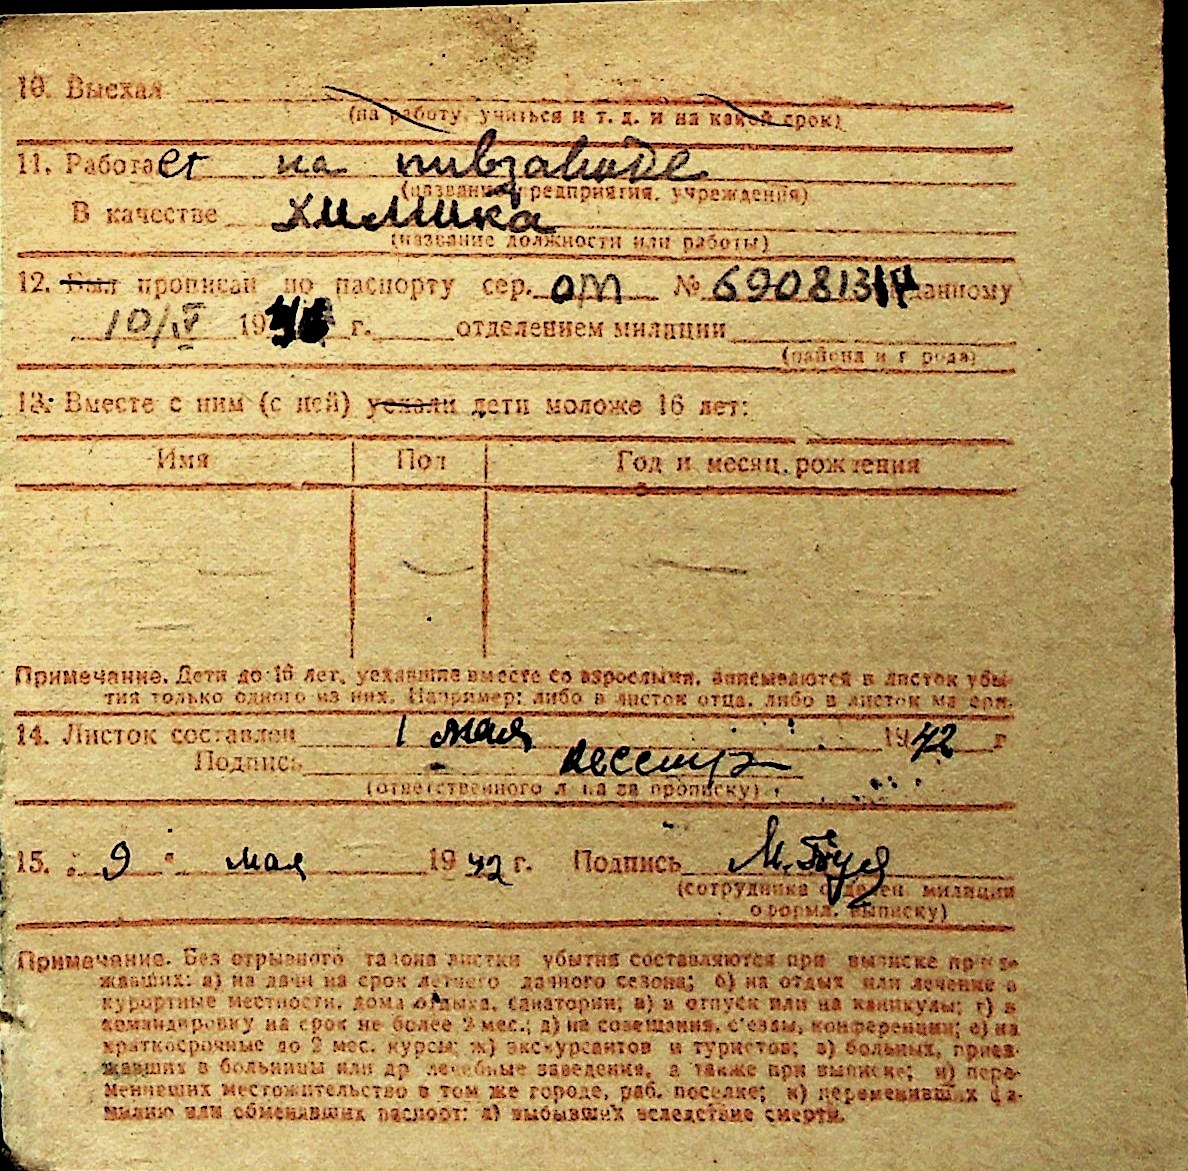 10. Выехал
(на работу, учиться и т. д. и на какой срок)
11. Работает на пивзаводе
(название предприятия, учреждения)
В качестве химика
(название должности или работы)
12. Был прописан по паспорту сер. ОТ № 690813 данному
10/V 19 г. отделением милиции
(района и города)
13. Вместе с ним (с ней) уехали дети моложе 16 лет:
Имя Пол Год и месяц рождения
Примечание. Дети до 16 лет, уехавшие вместе со взрослыми, записываются в листок убы-
тия только одного из них. Например: либо в листок отца, либо в листок матери.
14. Листок составлен 1 мая 1942 г
Подпись
(ответственного лица за прописку)
15. „ 9 " мая 1942 г. Подпись
(сотрудника отделен. милиции
оформл. выписку)
Примечание. Без отрывного талона листки убытия составляются при выписке приез-
жавших: а) на дачи на срок летнего дачного сезона; б) на отдых или лечение в
курортные местности, дома отдыха, санатории; в) в отпуск или на каникулы; г) в
командировку на срок не более 2 мес.; д) на совещания, с'езды, конференции; е) на
краткосрочные до 2 мес. курсы; ж) экскурсантов и туристов; з) больных, приез-
жавших в больницы или др лечебные заведения, а также при выписке; и) пере-
менивших местожительство в том же городе, раб. поселке; к) переменивших фа-
милию или обменявших паспорт: л) выбывших вследствие смерти.